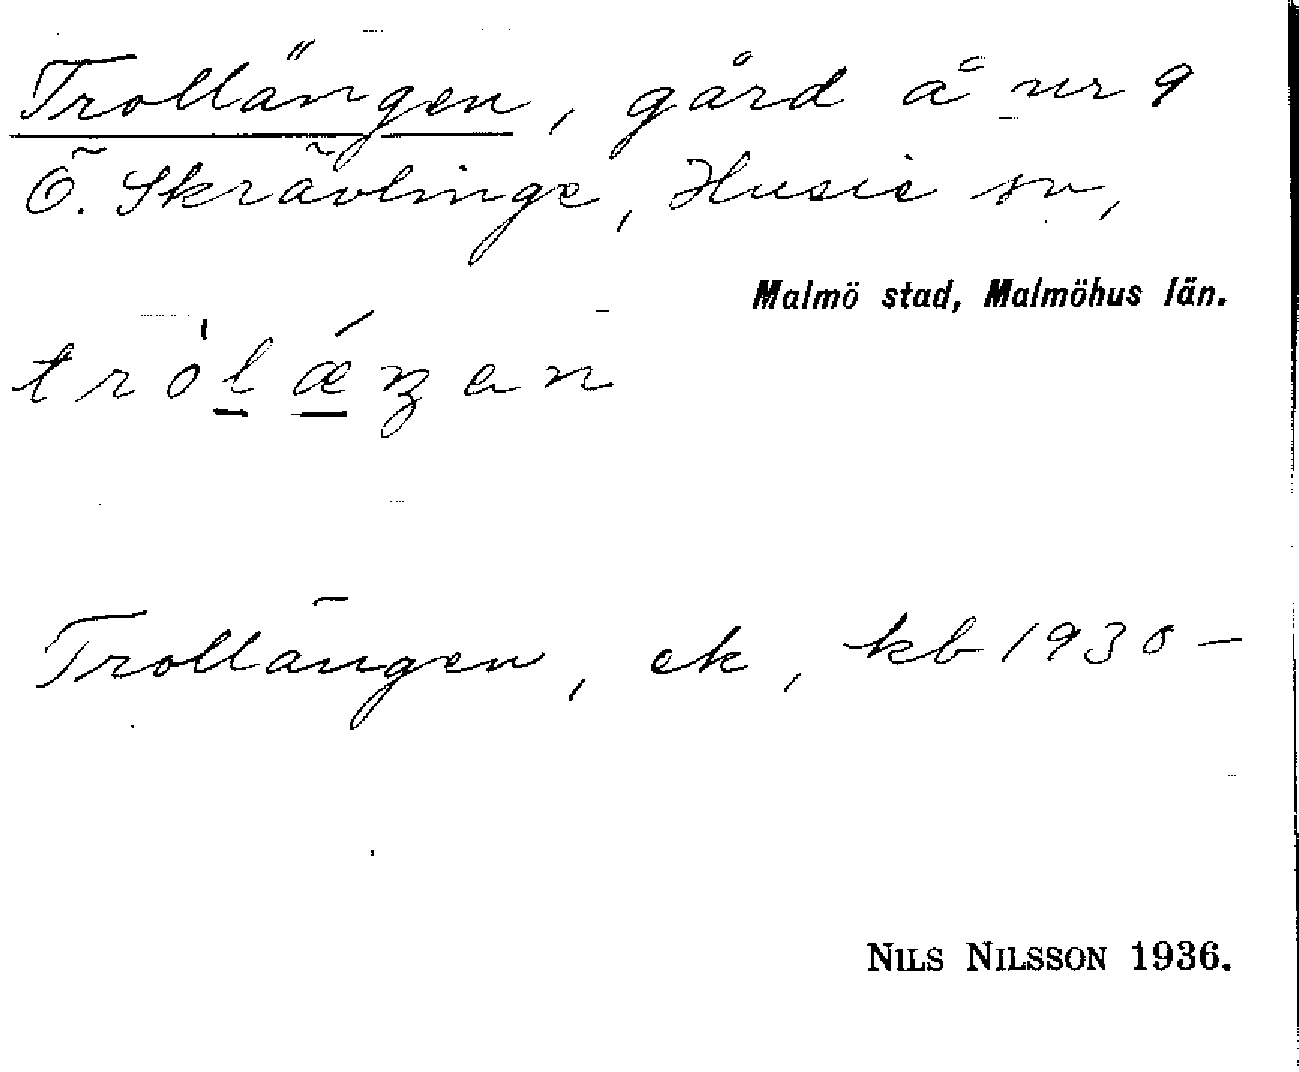 Trollängen, gård å nr 9
Ö. Skrävlinge, Husie sn,
Malmö stad, Malmöhus län.
Trollängen, ek, kb 1930 –
NILS NILSSON 1936.